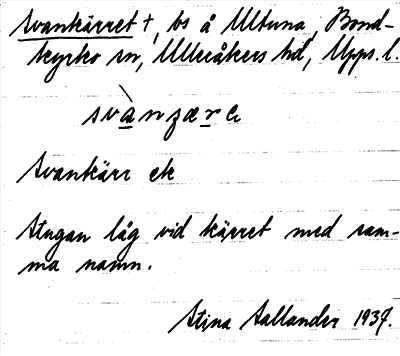 Svankärret †, bs å Ultuna, Bond-
kyrko sn, Ulleråkers hd, Upps. l.
svànɟæra
Svankärr ek
Stugan låg vid kärret med sam-
ma namn.
Stina Sallander 1937.